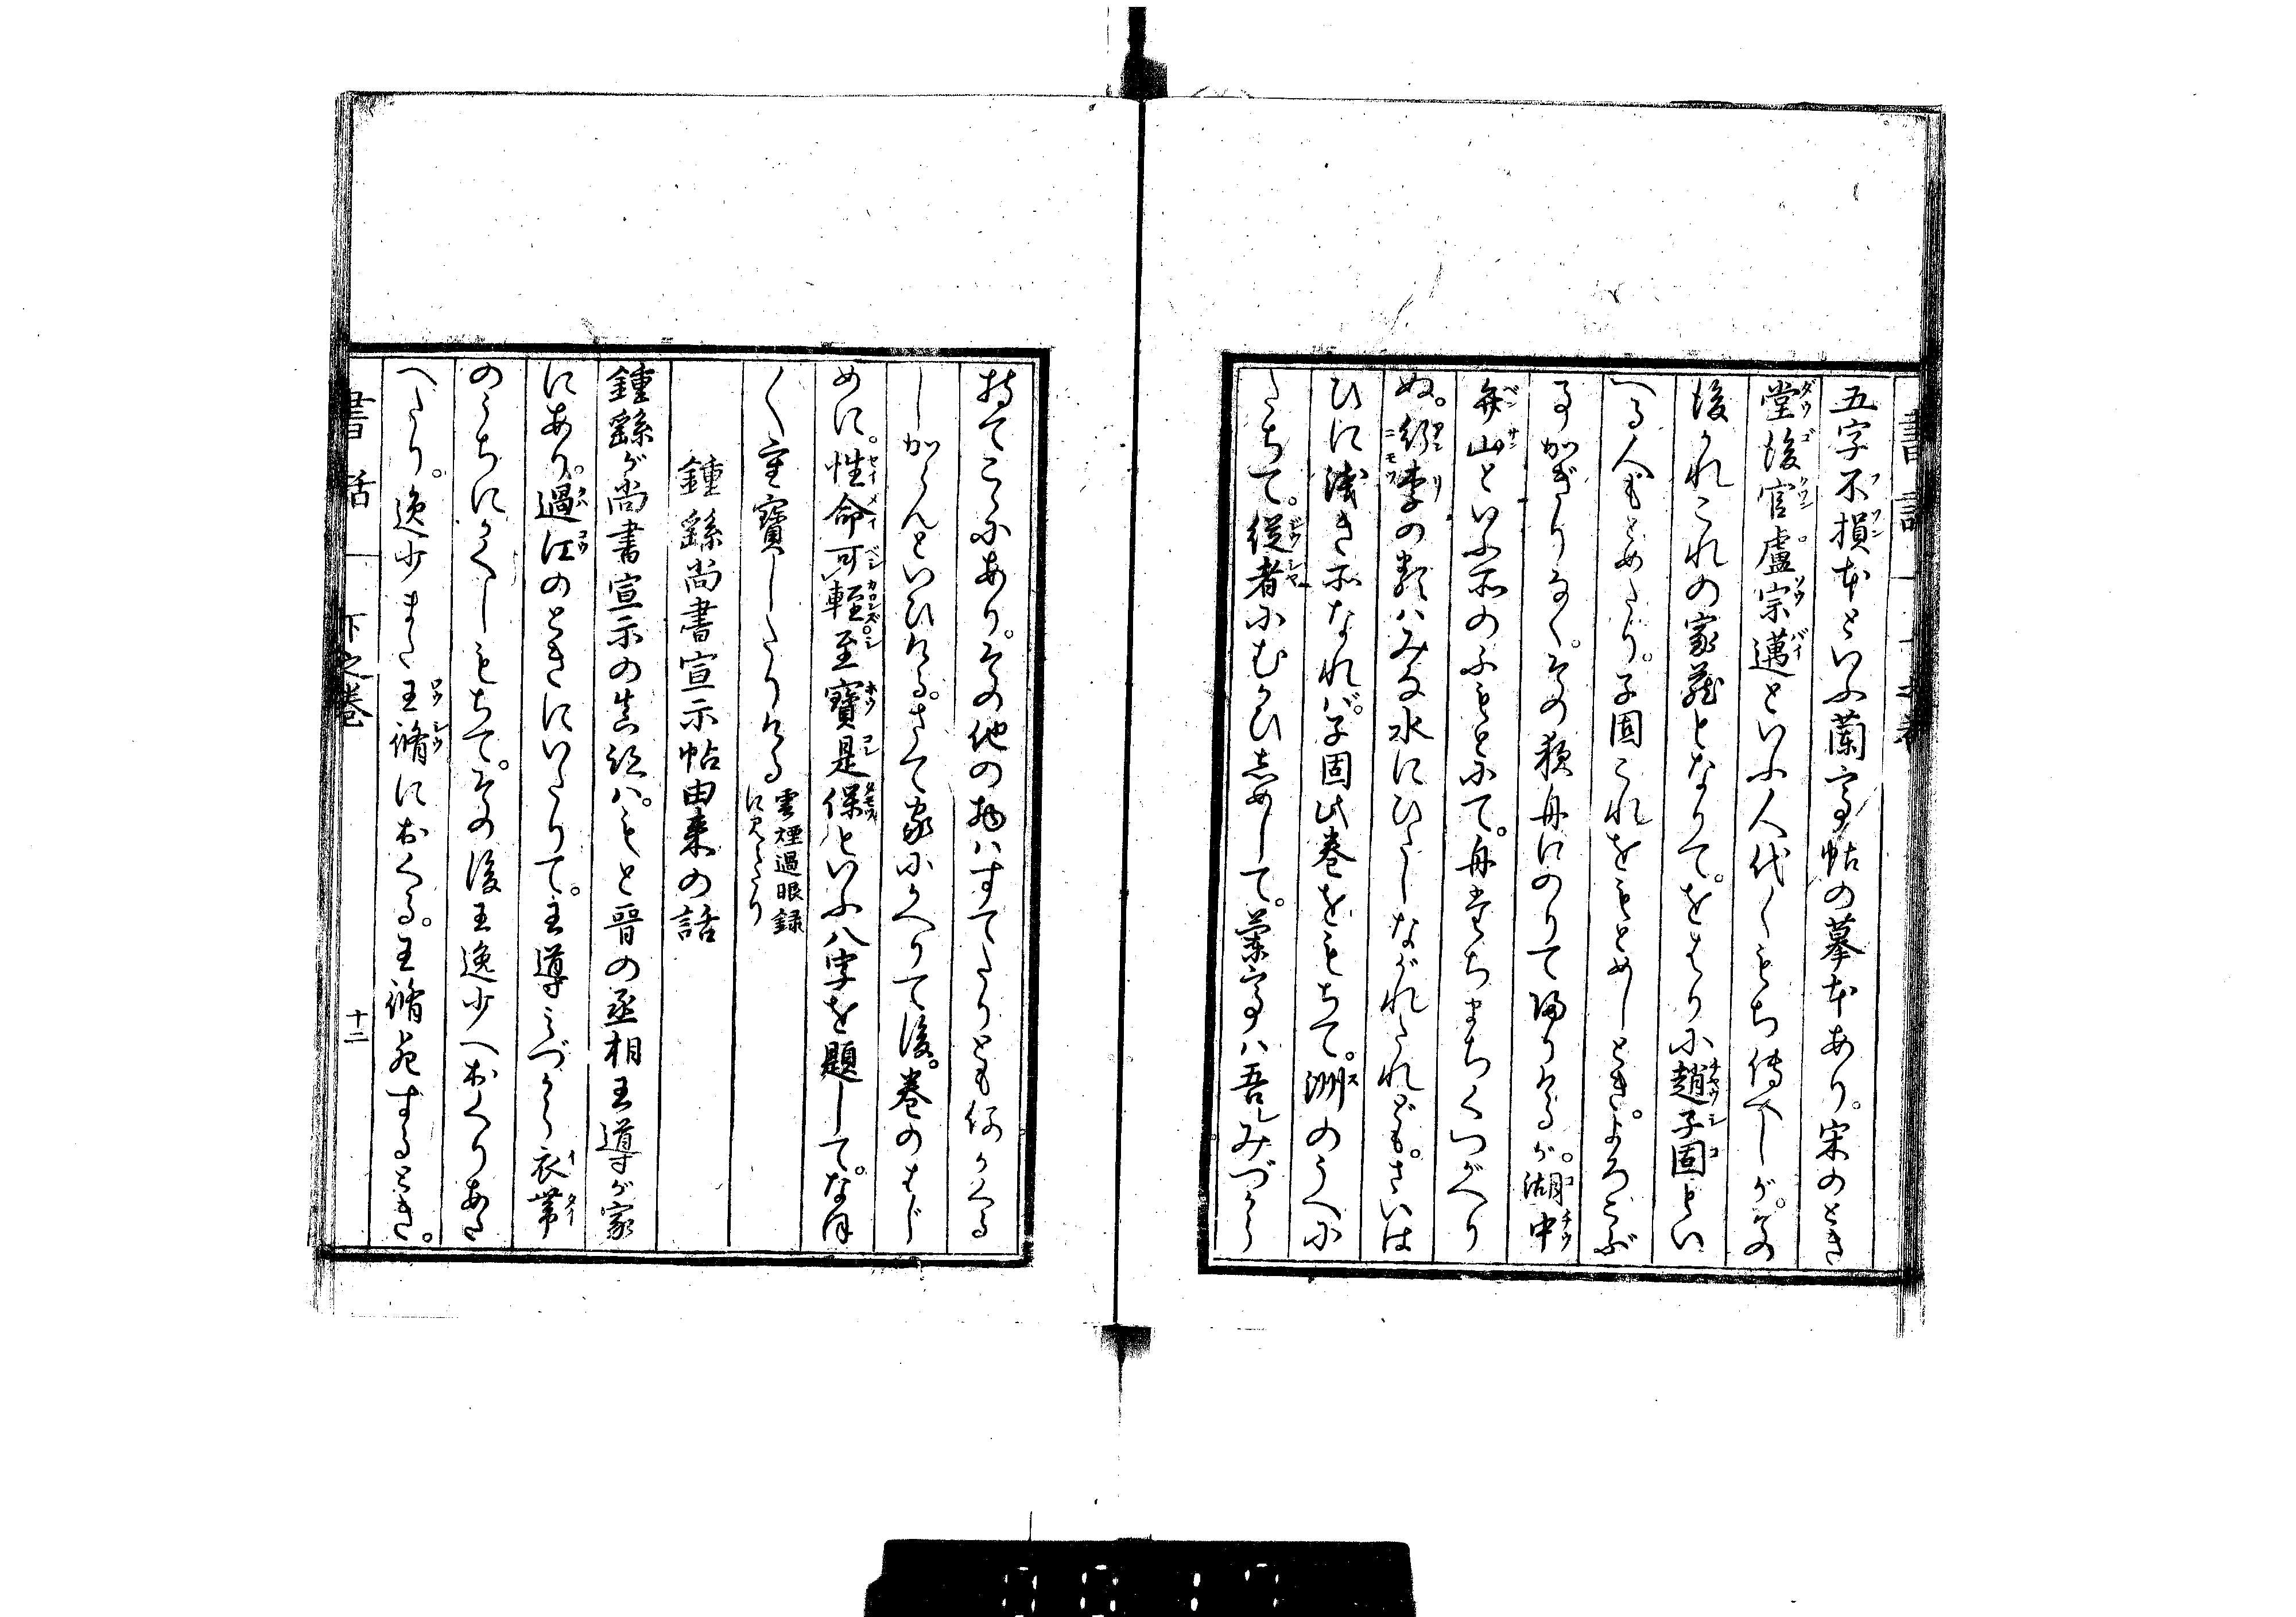 五字不損本といふ蘭亭帖の摹本あり。宋のとき
堂後官盧宗邁といふ人代〱もち傳へしが。その
後かれこれの家藏となりて。をはりに趙子固とい
へる人もとめたり。子固これをもとめしとき。よろこぶ
事かぎりなく。その夜舟にのりて帰りけるが。湖中
弁山といふ所のふもとにて。舟たちまちくつがへり
ぬ。行李の類ハみな水にひたしながれたれども。さいは
ひに淺き所なれバ。子固此巻をもちて。洲のうへに
たちて。從者にむかひしめして。蘭亭ハ吾レみづから
持てこゝにあり。その他の物ハすてたりとも何かくる
しからんといひける。さて家にかへりて後。巻のはじ
めに。性命可輕至寶是保といふ八字を題して。なほ
〱重寶したりける
雲煙過眼録
に見へたり
鍾繇尚書宣示帖由来の話
鍾繇が尚書宣示の真跡ハ。もと晉の丞相王導が家
にあり。過江のときにいたりて。王導みづから衣帶
のうちにかくしもちて。その後王逸少へおくりあた
へたり。逸少また王脩におくる。王脩死するとき。
書話
下之巻
十二